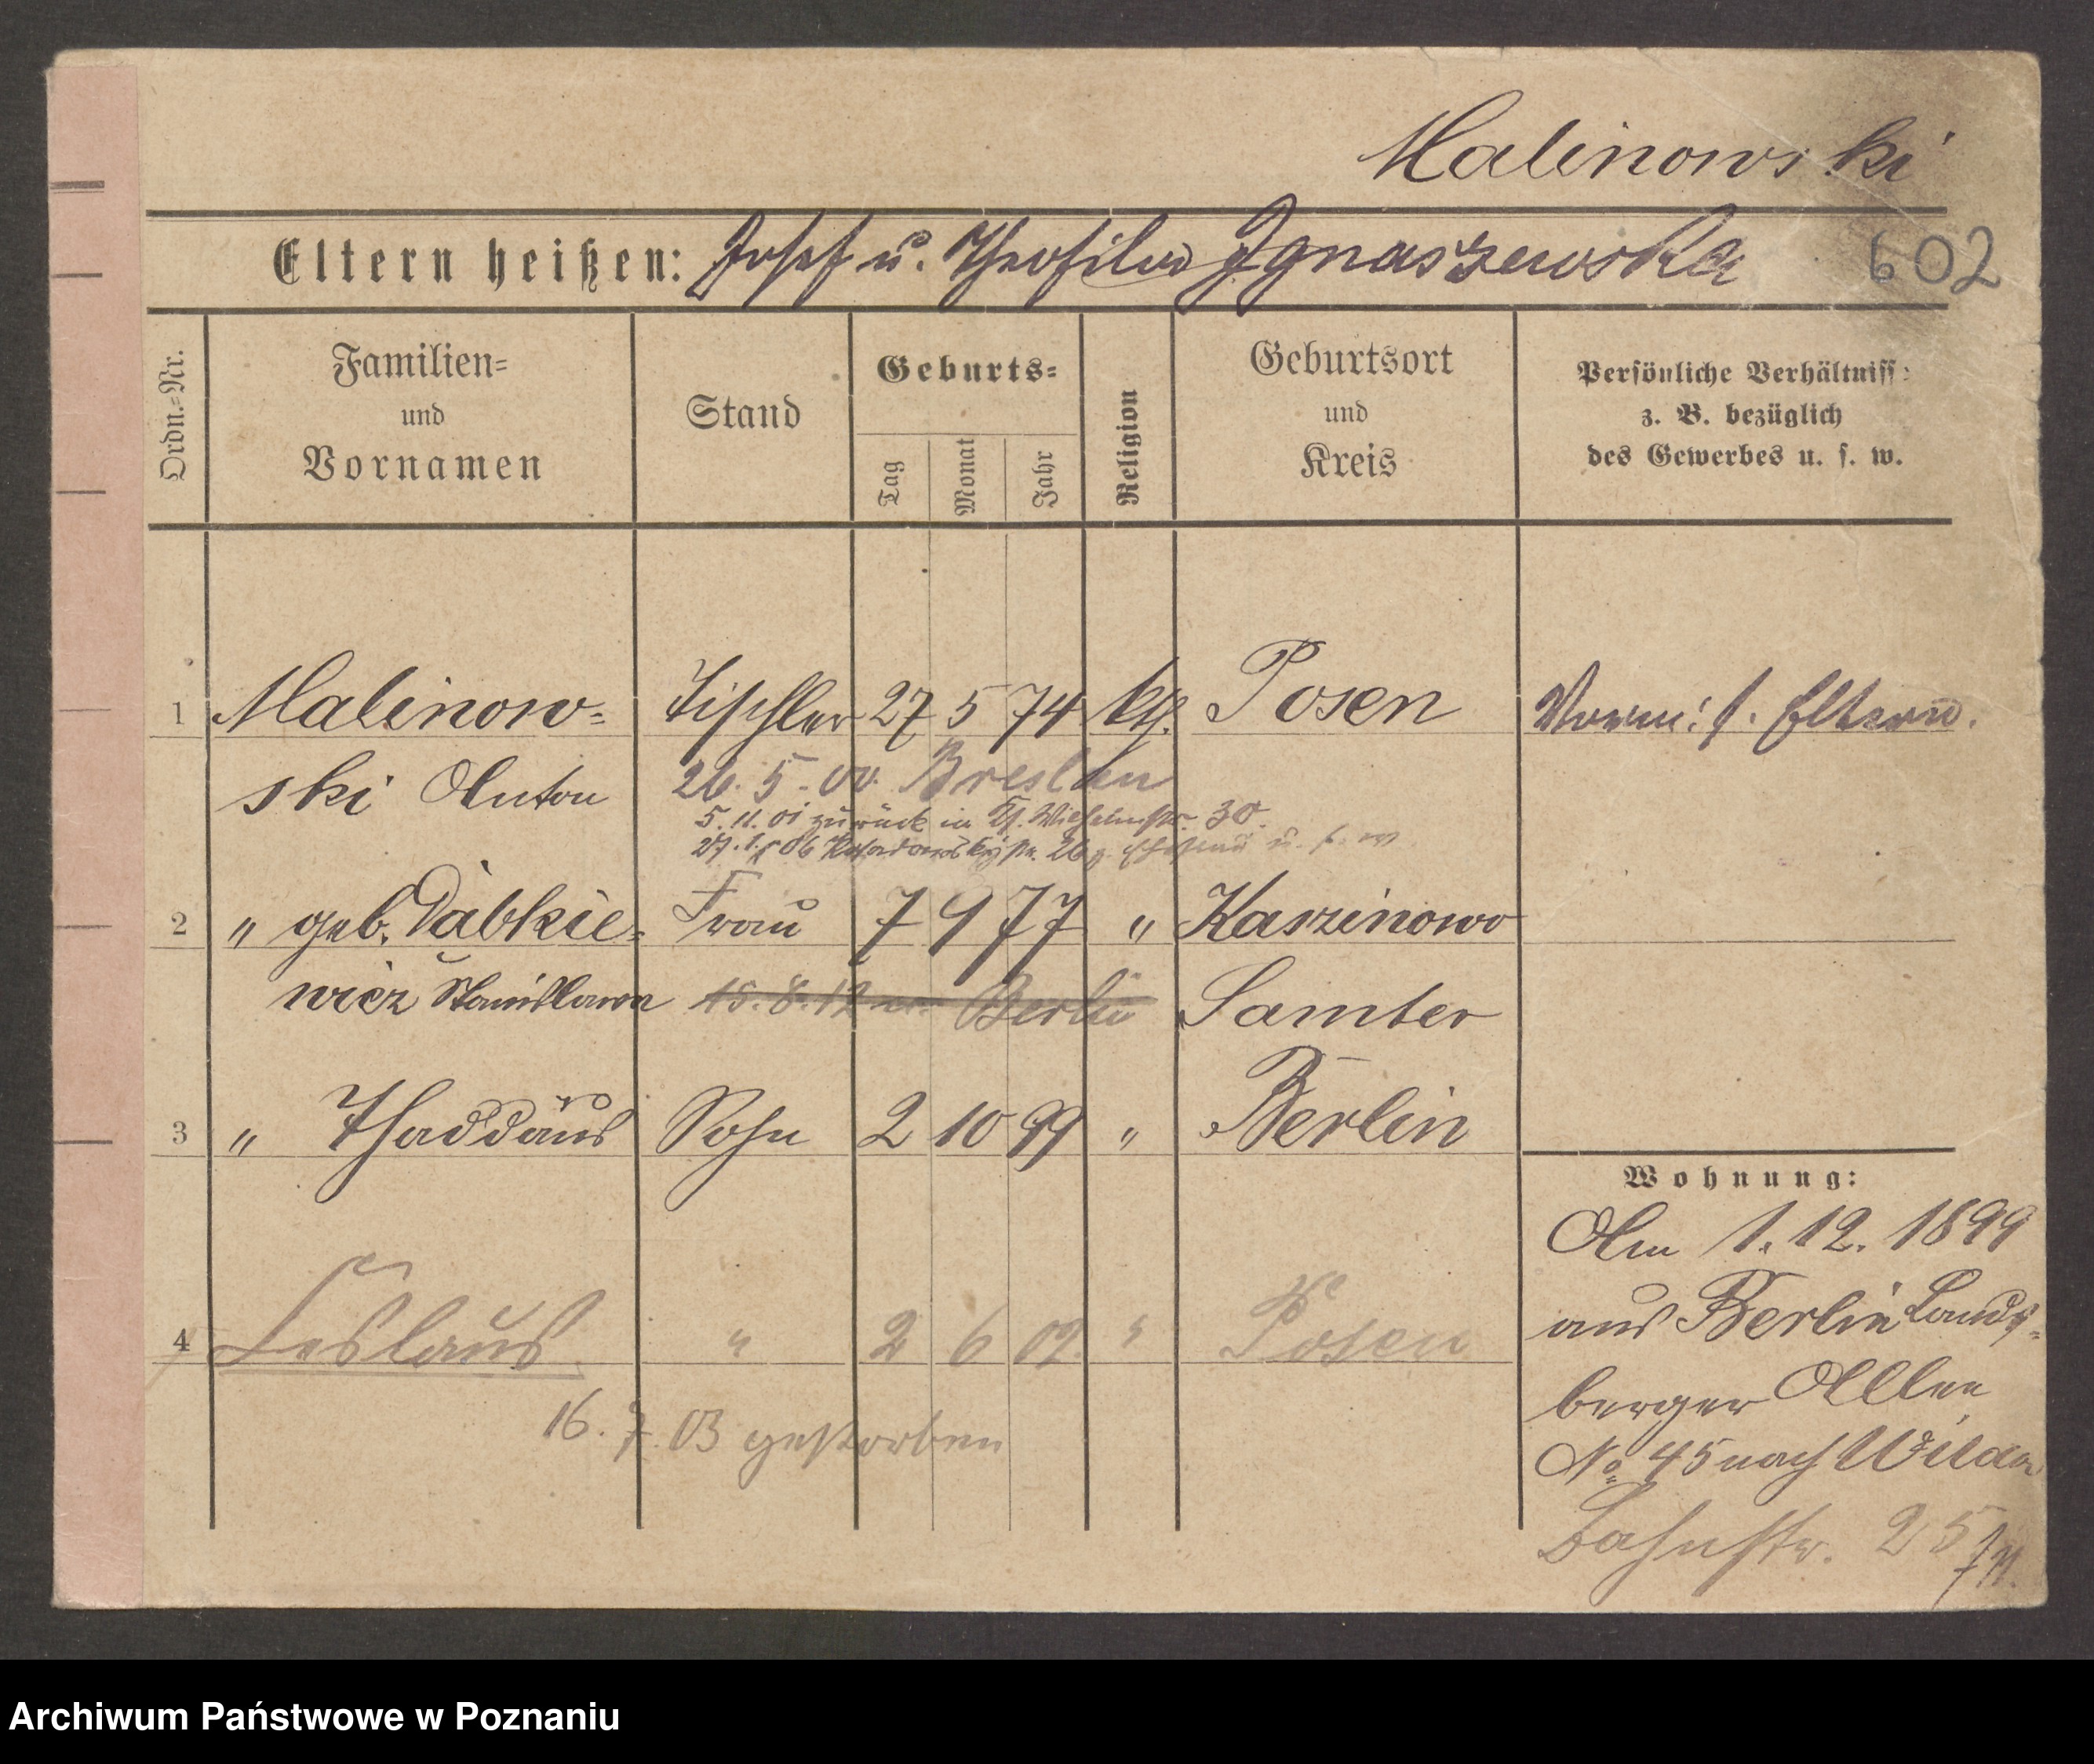 Malinowski
Eltern heißen: Josef u. Theofila Ignaszewska 602
Ordn.-Nr.
Familien-
und
Vornamen
Stand
Geburts-
Tag
Monat
Jahr
Religion
Geburtsort
und
Kreis
Persönliche Verhältniss:
z. B. bezüglich
des Gewerbes u. s. w.
1 Malinow- Tischler 27 5 74 kth. Posen Verm: s. Eltern.
ski Anton 26. 5. 00. Breslau
5. 11. 01 zurück in 30.
27. 26 u. s. w
2 " geb. Dąbkie- Frau 7 9 77 " Kaszinowo
wicz Stanislawa 15. 8. 12 Berlin Samter
3 " Thaddäus Sohn 2 10 99 " Berlin
Wohnung:
4 Ceslaus " 2 6 02. " Posen
16. 7. 03 gestorben
Am 1. 12. 1899
aus Berlin Lands-
berger Allee
No 45 nach Wilda
Bahnstr. 25
Archiwum Państwowe w Poznaniu